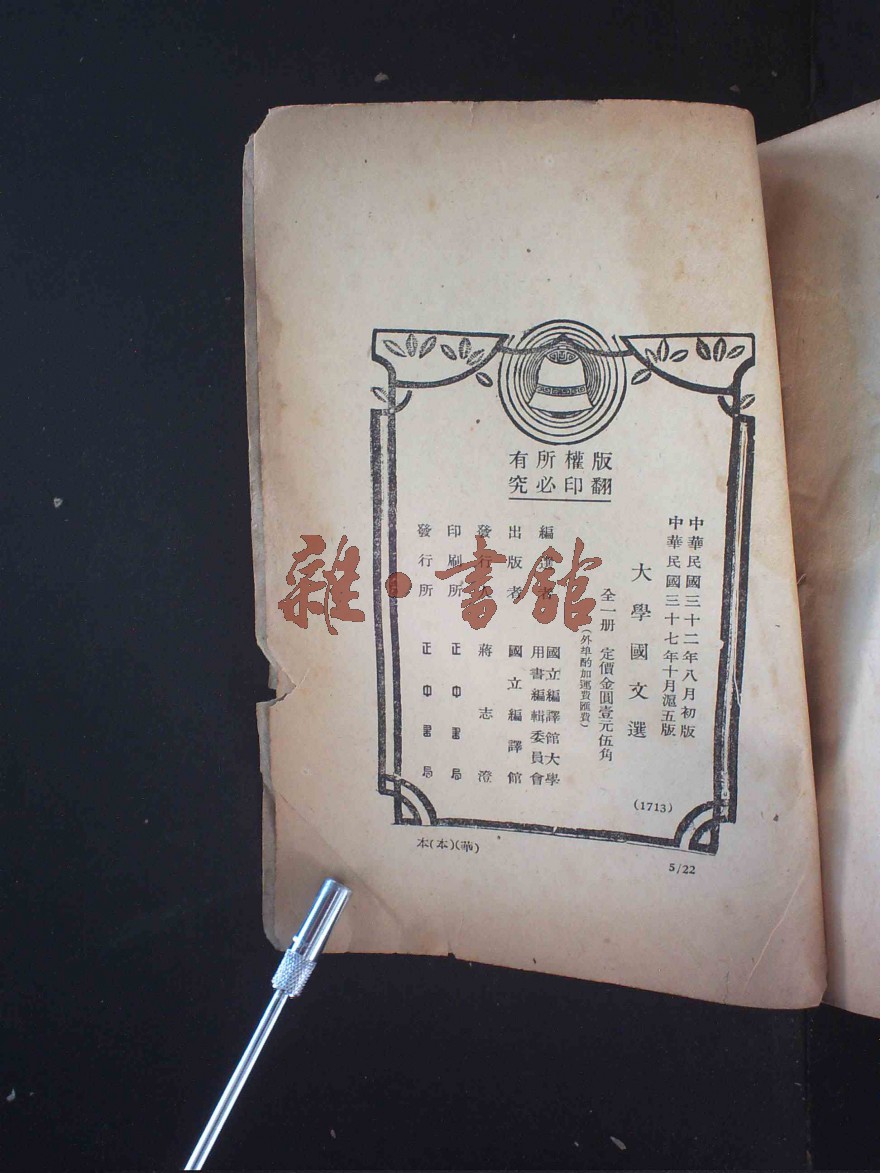 版權所有
翻印必究
中華民國三十二年八月初版
中華民國三十七年十月滬五版
大學國文選
全一册 定價金圓壹元伍角
(外埠酌加運費匯費)
編選者 國立編譯館大學用書編輯委員會
出版者 國立編譯館
發行人 蔣志澄
印刷所 正中書局
發行所 正中書局
(1713)
本(本)(華)
5/22
雜·書館